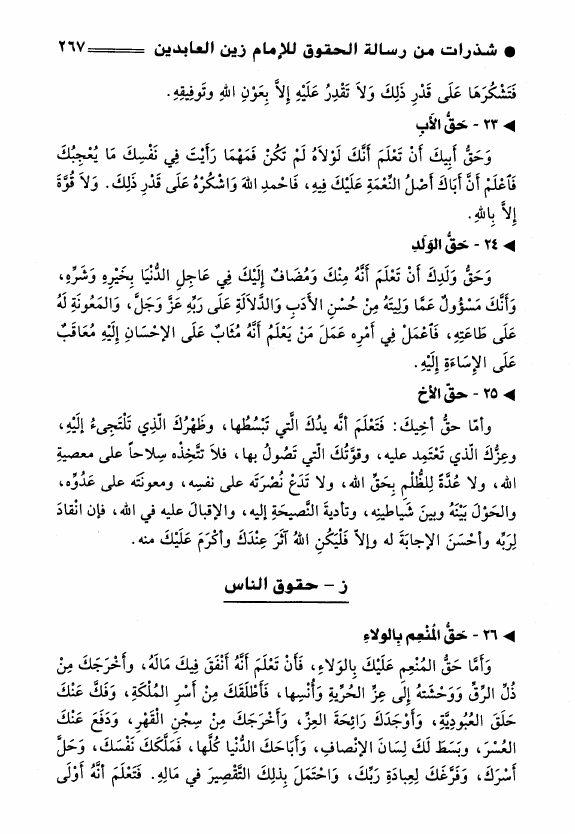 ● شذرات من رسالة الحقوق للإمام زين العابدين ٢٦٧
فَتَشْكُرَهَا عَلَى قَدْرِ ذَلِكَ وَلاَ تَقْدِرُ عَلَيْهِ إِلاَّ بِعَوْنِ اللهِ وتَوفِيقِهِ.
◄ ٢٣ - حَقُّ الأَبِ
وَحَقُّ أَبِيكَ أَنْ تَعْلَمَ أَنَّكَ لَوْلاَهُ لَمْ تَكُنْ فَمَهْمَا رَأَيْتَ فِي نَفْسِكَ مَا يُعْجِبُكَ
فَاعْلَمْ أَنَّ أَبَاكَ أَصْلُ النِّعْمَةِ عَلَيْكَ فِيهِ، فَاحْمدِ اللهَ وَاشْكُرْهُ عَلَى قَدْرِ ذَلِكَ. وَلاَ قُوَّةَ
إِلاَّ بِاللهِ.
◄ ٢٤ - حَقُّ الوَلَدِ
وَحَقُّ وَلَدِكَ أَنْ تَعْلَمَ أَنَّهُ مِنْكَ وَمُضَافٌ إِلَيْكَ فِي عَاجِلِ الدُّنْيَا بِخَيْرِهِ وَشَرِّهِ،
وَأَنَّكَ مَسْؤُولٌ عَمَّا وَلِيتَهُ مِنْ حُسْنِ الأَدَبِ وَالدَّلاَلَةِ عَلَى رَبِّهِ عَزَّ وَجَلَّ، وَالمَعُونَةِ لَهُ
عَلَى طَاعَتِهِ، فَاعْمَلْ فِي أَمْرِهِ عَمَلَ مَنْ يَعْلَمُ أَنَّهُ مُثَابٌ عَلَى الإِحْسَانِ إِلَيْهِ مُعَاقَبٌ
عَلَى الإِسَاءَةِ إِلَيْهِ.
◄ ٢٥ - حقّ الأخ
وأمّا حقُّ أخِيكَ: فَتَعْلَمَ أنَّه يدُكَ الَّتي تَبْسُطُها، وظَهْرُكَ الَّذِي تَلْتَجِىءُ إلَيْهِ،
وعِزُّكَ الَّذي تَعْتَمِد عليه، وقوَّتُكَ الّتي تَصُولُ بها، فلاَ تتَّخِذْه سِلاحاً على معصيةِ
الله، ولا عُدَّةً لِلظُّلْمِ بِحَقِّ الله، ولا تَدَعْ نُصْرَتَه على نفسِه، ومعونَتَه على عَدُوِّه،
والحَوْلَ بَيْنَهُ وبينَ شَياطينِه، وتأديةَ النَّصيحَةِ إليه، والإقبالَ عليه في الله، فإن انْقادَ
لِرَبِّه وأحْسَنَ الإجابَةَ له وإلاّ فَلْيَكُنِ اللهُ آثَرَ عِنْدَكَ وأكْرَمَ عَلَيْكَ منه.
ز - حقوق الناس
◄ ٢٦ - حَقُّ المُنْعِمِ بِالولاءِ
وَأَمَّا حَقُّ المُنْعِمِ عَلَيْكَ بِالوَلاَءِ، فَأَنْ تَعْلَمَ أَنَّهُ أَنْفَقَ فِيكَ مَالَهُ، وأَخْرَجَكَ مِنْ
ذُلِّ الرِّقِّ وَوَحْشَتِهُ إِلَى عِزِّ الحُرِّيَةِ وَأُنْسِها، فَأَطْلَقَكَ مِنْ أَسْرِ المُلْكَةِ، وَفَكَّ عَنْكَ
حَلَقَ العُبُودِيَّةِ، وَأَوْجَدَكَ رَائِحَةَ العِزِّ، وَأَخْرَجَكَ مِنْ سِجْنِ القَهْرِ، وَدَفَعَ عَنْكَ
العُسْرَ، وبَسَطَ لَكَ لِسَانَ الإنْصافِ، وَأَبَاحَكَ الدُّنْيا كُلَّها، فَمَلَّكَكَ نَفْسَكَ، وَحَلَّ
أَسْرَكَ، وَفَرَّغَكَ لِعِبادَةِ رَبِّكَ، وَاحْتَمَلَ بِذلِكَ التَّقْصِيرَ في مَالِهِ. فَتَعْلَمَ أَنَّهُ أَوْلَى